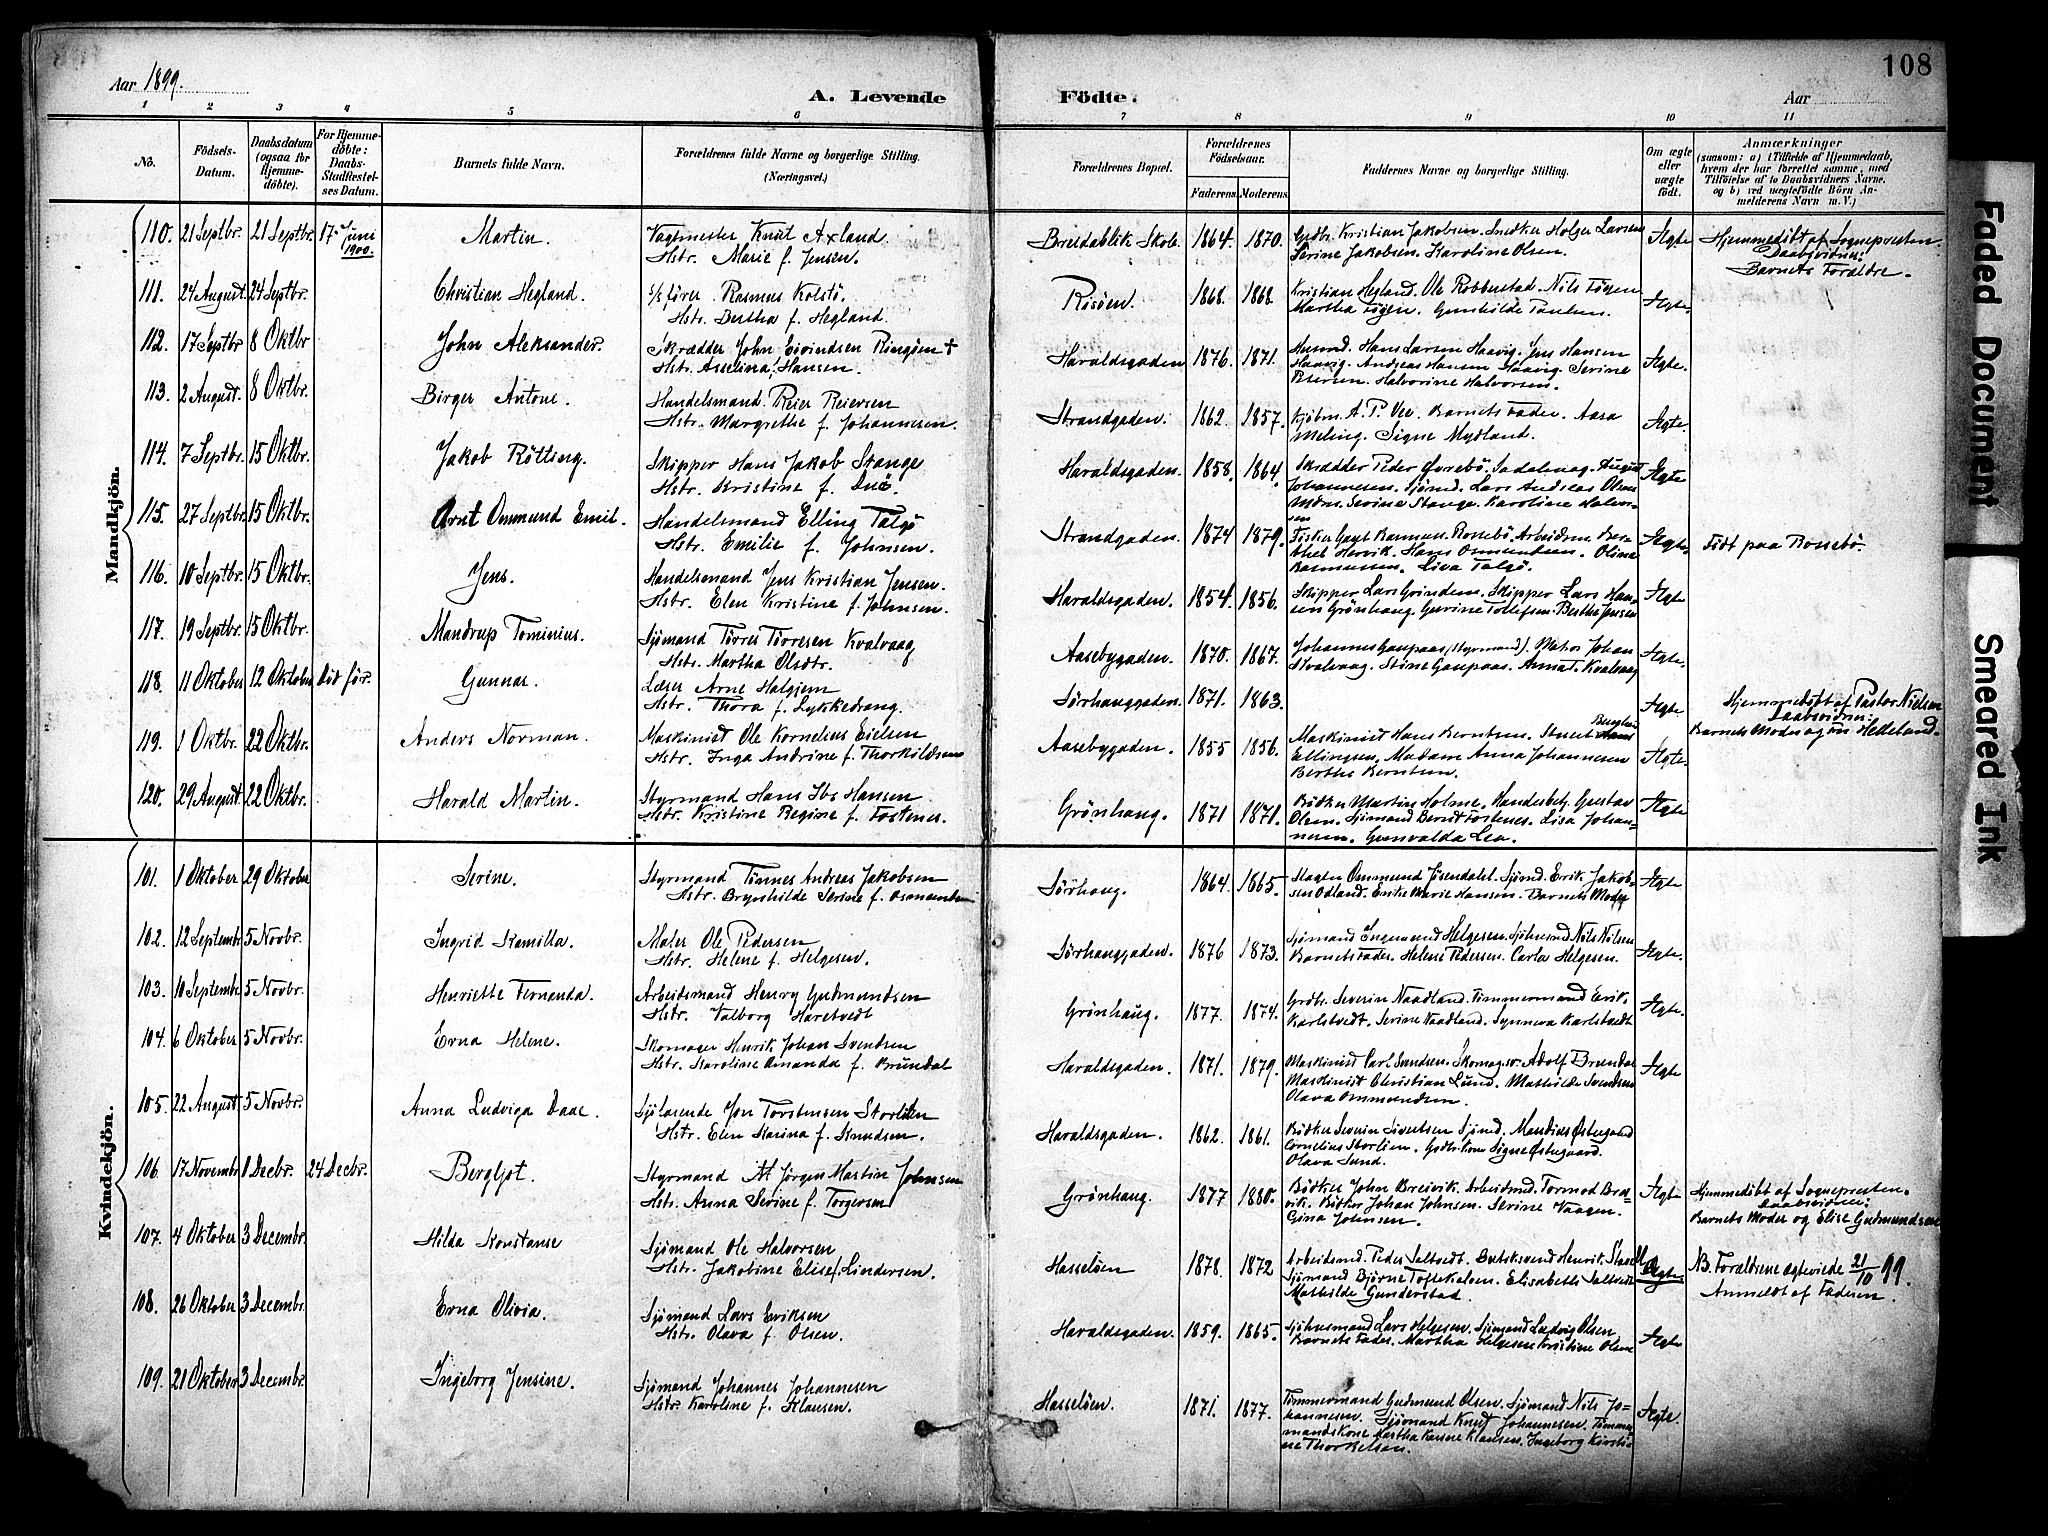 108
Aar 1899.
A. Levende Födte.
Aar
1 2 3 4 5 6 7 8 9 10 11
No.
Födsels-Datum.
Daabsdatum (ogsaa for Hjemme-döbte).
For Hjemme-döbte: Daabs-Stadfæstel-ses Datum.
Barnets fulde Navn.
Forældrenes fulde Navne og borgerlige Stilling.
(Næringsvei.)
Forældrenes Bopæl.
Forældrenes Födselsaar.
Faderens. Moderens.
Faddernes Navne og borgerlige Stilling.
Om ægte eller uægte födt.
Anmærkninger
(saasom: a) i Tilfælde af Hjemmedaab,
hvem der har forrettet samme, med
Tilföielse af to Daabsvidners Navne,
og b) ved uægtefödte Börn An-
melderens Navn m. V.)
Mandkjön.
110. 21 Septbr. 21 Septbr. 17 Juni 1900. Martin. Vagtmester Knut Axland. Hstr. Marie f. Jensen. Breidablik Skole. 1864. 1870. Grdbr. Kristian Jakobsen. Snedker Holger Larsen
Serine Jakobsen. Karoline Olsen. Ægte Hjemmedöbt af Sognepresten.
Daabsvidner:
Barnets Forældre.
111. 24 August. 24 Septbr. Christian Hegland. s/s förer. Rasmus Kolstö. Hstr. Bertha f. Hegland. Risöen. 1868. 1868. Kristian Hegland. Ole Robberstad. Nils Fögen
Martha Fögen. Gunhilde Paulsen. Ægte.
112. 17 Septbr 8 Oktbr John Aleksander. Skrædder John Eivindsen Ringöen + Hstr. Asselina Hansen. Haraldsgaden 1876. 1871. Husmd. Hans Larsen Haavig. Jens Hansen
Haavig. Andreas Hansen Haavig. Serine
Petersen. Halvorine Halvorsen. Ægte.
113. 2 August. 8 Oktbr. Birger Antone. Handelsmand. Reier Reiersen Hstr. Margrethe f. Johannesen. Strandgaden. 1862. 1857. Kjöbm. A. P. Vee. Barnets Fader. Aasa
Meling. Signe Mydland. Ægte.
114. 7 Septbr. 15 Oktbr. Jakob Rötting. Skipper Hans Jakob Stange Hstr. Kristine f. Duö. Haraldsgaden. 1858. 1864. Skrædder Peder Övrebö. August
Johannesen. Sjömd. Lars Andreas Olsen
Serine Stange. Karoline Halvor-
sen Ægte
115. 27 Septbr. 15 Oktbr. Arnt Ommund Emil. Handelsmand Elling Talgö Hstr. Emilie f. Johnsen. Strandgaden. 1874 1879. Fisker Rasmus. Rossebö. Arbeidsm. Ber-
thel Hervik. Hans Osmundsen. Oline
Rasmussen. Liva Talgö. Ægte. Födt paa Rossebö.
116. 10 Septbr. 15 Oktbr. Jens. Handelsmand Jens Kristian Jensen. Hstr. Elen Kristine f. Johnsen. Haraldsgaden. 1854. 1856. Skipper Lars Grindem. Skipper Lars Han-
sen Grönhaug. Gurine Tollefsen. Bertha Jensen Ægte
117. 19 Septbr. 15 Oktbr. Mandrup Tominius. Sjömand Törres Törresen Kvalvaag Hstr. Martha Olsdtr. Aasebygaden. 1870. 1867. Johannes Gaupaas (Styrmand). Mator Johan
Kvalvaag. Stine Gaupaas. Anna T. Kvalvaag Ægte.
118. 11 Oktober 12 Oktober Död för. Gunnar. Læser Arne Halgjem Hstr. Thora f. Lykkedrang. Sörhauggaden 1871. 1863. Ægte Hjemmedöbt af Pastor Nielsen
Daabsvidner:
Barnets Moder og Helleland.
119. 1 Oktbr. 22 Oktbr. Anders Norman. Maskinist Ole Kornelius Eielsen Hstr. Inga Andrine f. Thorkildsen Aasebygaden. 1855 1856. Maskinist Hans Berntsen.
Ellingsen. Madam Anna Johannesen
Berthe Berntsen. Ægte.
120. 29 August 22 Oktbr. Harald Martin. Styrmand Hans Ibs Hansen Hstr. Kristine Regine f. Fostenes. Grönhaug. 1871 1871. Bödker Martin Holme. Handelsbetj. Gustav
Olsen. Sjömand Bernt Fostenes. Lisa Johan-
nesen. Gunvalda Lea. Ægte
Kvindekjön.
101. 1 Oktober 29 Oktober Serine. Styrmand Tönnes Andreas Jakobsen Hstr. Brynhilde Serine f. Osmundsen Sörhaug. 1864. 1865. Slagter Ommund Jösendalet. Sjömd. Erik Jakob-
sen Odland. Enke Marie Hansen. Barnets Moder Ægte
102. 12 Septembr 5 Novbr. Ingrid Kamilla. Maler Ole Pedersen Hstr. Helene f. Helgesen. Sörhauggaden. 1876 1873. Sjömand Ingemund Helgesen. Sjömand Nils Nilsen
Barnets Fader. Helene Pedersen. Carla Helgesen. Ægte.
103. 10 Septembr 5 Novbr. Henriette Fernanda. Arbeidsmand Henry Gudmundsen Hstr. Valborg Haretvedt Grönhaug. 1877. 1874. Grdbr. Severin Naadland. Timmermand Erik.
Karlstvedt. Serine Naadland. Synneva Karlstvedt Ægte.
104. 6 Oktober 5 Novbr. Erna Helene. Skomager Henrik Johan Svendsen Hstr. Karoline Amanda f. Brundal Haraldsgaden. 1871. 1879. Maskinist Carl Svendsen. Skomag.sv. Adolf Brundal
Maskinist Christian Lund. Mathilde Svendsen
Olava Ommundsen. Ægte
105. 22 August 5 Novbr. Anna Ludviga Daae. Sjölærende Jon Torstensen Storlien Hstr. Elen Karina f. Knudsen. Haraldsgaden. 1862. 1861. Bödker Severin Sivertsen Sjömd. Mandius Östegaard
Cornelius Storlien. Grdbr.kone Signe Östegaard.
Olava Sund.
106. 17 Novembr 1 Decbr. 24 Decbr. Bergljot. Styrmand M. Jörgen Martin Johnsen Hstr. Anna Serine f. Torgersen Grönhaug. 1877 1880. Bödker John Breivik. Arbeidsmd. Tormod Brei-
vik. Bödker Johan Johnsen. Serine Vaagen.
Gina Johnsen. Ægte Hjemmedöbt af Sognepresten.
Daabsvidner:
Barnets Moder og Elise Gudmundsen
107. 4 Oktober 3 Decembr. Hilda Konstanse Sjömand Ole Halvorsen Hstr. Jakobine Elise f. Lindersen. Hasselöen 1878. 1872 Arbeidsmd. Peder Saltvedt. Butiksvend Henrik
Sjömand Björne Toftekalven. Elisabeth Saltvedt
Mathilde Gunderstad. Ægte NB. Forældrene ægteviede 21/10 99.
Anmeldt af Faderen.
108. 26 Oktober 3 Decembr. Erna Olivia. Sjömand Lars Eriksen Hstr. Olava f. Olsen. Haraldsgaden. 1859. 1865. Sjömand Lars Helgesen. Sjömand Ludvig Olsen
Barnets Fader. Martha Helgesen Kristine Olsen Ægte
109. 21 Oktober 3 Decembr. Ingeborg Jensine. Sjömand Johannes Johannesen Hstr. Karoline f. Klausen. Hasselöen. 1871. 1877. Timmermand Gudmund Olsen. Sjömand Nils Jo-
hannesen. Sjömand Knut Johannesen. Timmer-
mandskone Martha Karine Klausen. Ingeborg Kirsti-
ne Thorkelsen. Ægte.
Faded Document
Smeared Ink